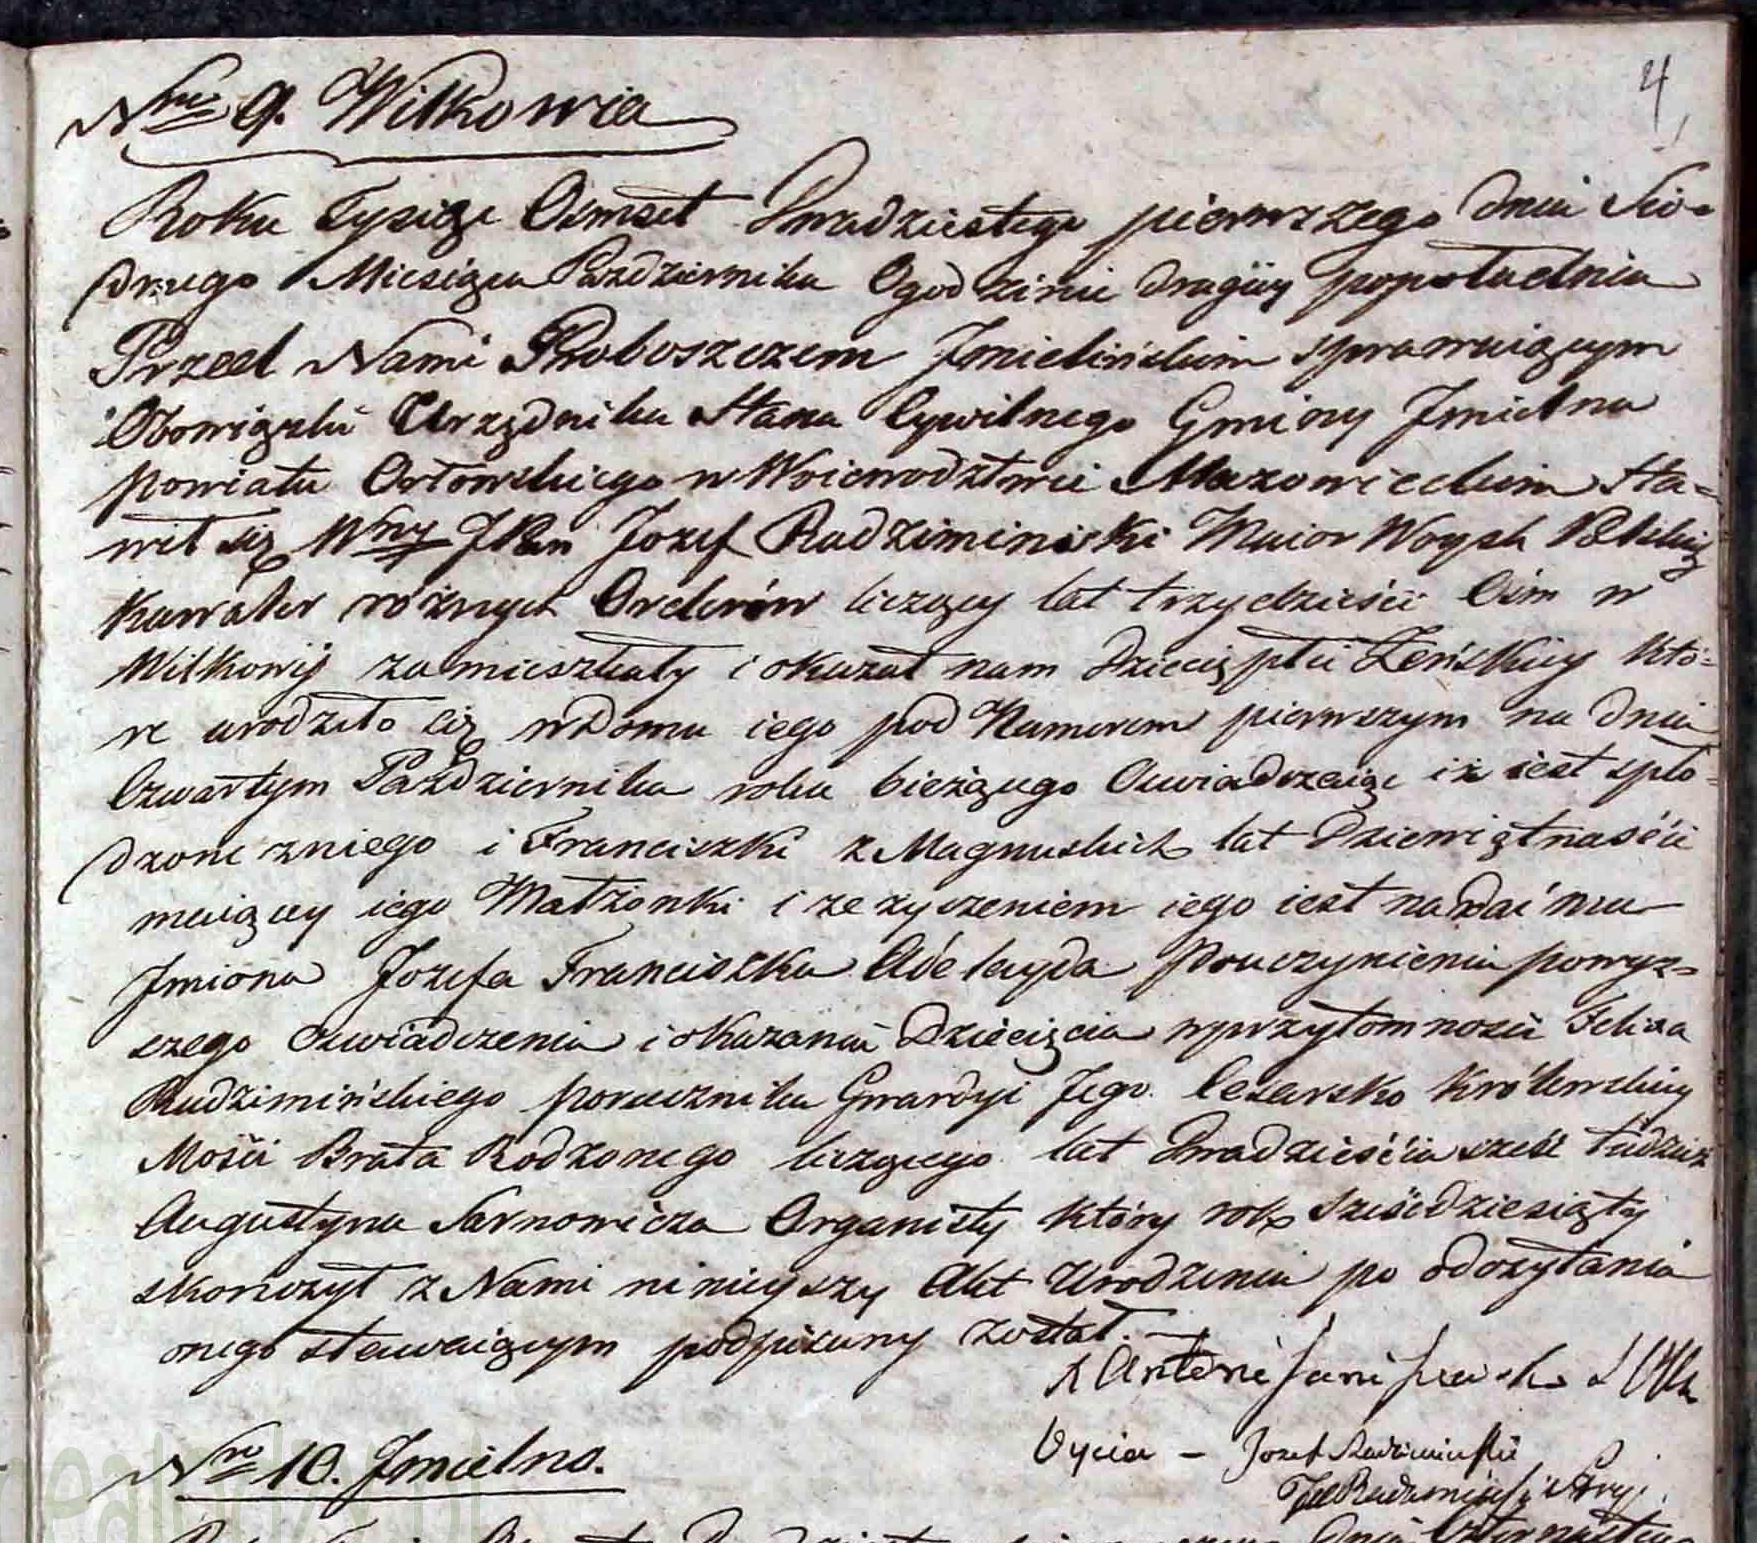 4
Nro 9. Wilkowia
Roku Tysiąc Osmset Dwadziestego pierwszego dnia Sio-
dmego Miesiąca Pazdziernika O godzinie drugiey popołudniu
Przed Nami Proboszczem Jmielińskim sprawuiącym
Obowiązki Urzędnika Stanu Cywilnego Gminy Jmielna
powiatu Orłowskiego w Woiewodztwie Mazowieckim sta-
wił się Wny JPan Jozef Radziminski Maior Woysk Polskich
Kawaler różnych Orderów liczący lat trzydzieści Ośm w
Wilkowij zamieszkały i okazał nam dziecię płci Żeńskiey któ-
re urodziło się w Domu iego pod Numerem pierwszym na dniu
Czwartym Pazdziernika roku bieżącego Oświadczaiąc iż iest spło-
dzone z niego i Franciszki z Magnuskich lat Dziewiętnaście
maiącey iego Małżonki i że życzeniem iego iest nadać mu
Jmiona Jozefa Franciszka Adelayda Po uczynieniu powyż-
szego oświadczenia i okazaniu Dziecięcia w przytomności Felixa
Radzimińskiego porucznika Gwardyi Jego Cesarsko Królewskiey
Mości Brata Rodzonego liczącego lat Dwadzieścia sześć tudzież
Augustyna Sarnowicza Organisty który rok sześćdziesiąty
skończył z Nami ninieyszy Akt Urodzenia po odczytaniu
onego stawaiącym podpisany został.
X Antoni
Oycia – Jozef Radziminski
Fel Radzimiński Stryj
Nro 10. Jmielno.